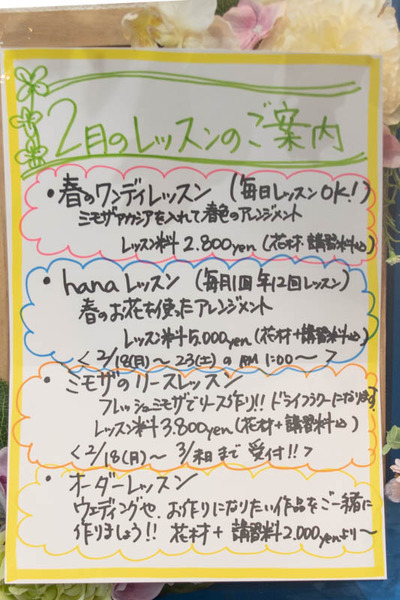 2月のレッスンのご案内
・春のワンディレッスン (毎日レッスンOK!)
ミモザアカシアを入れて春色のアレンジメント
レッスン料 2.800yen (花材・講習料込)
・hanaレッスン (毎月1回 年12回レッスン)
春のお花を使ったアレンジメント
レッスン料5,000yen (花材+講習料込)
<2/18(月)〜23(土)の AM 1:00〜>
・ミモザのリースレッスン
フレッシュミモザでリース作り!! ドライフラワーになります!
レッスン料3.800yen (花材+講習料込)
<2/18(月)〜3/末日まで 受付!!>
・オーダーレッスン
ウェディングや、お作りになりたい作品をご一緒に
作りましょう!! 花材+講習料2.000yenより〜